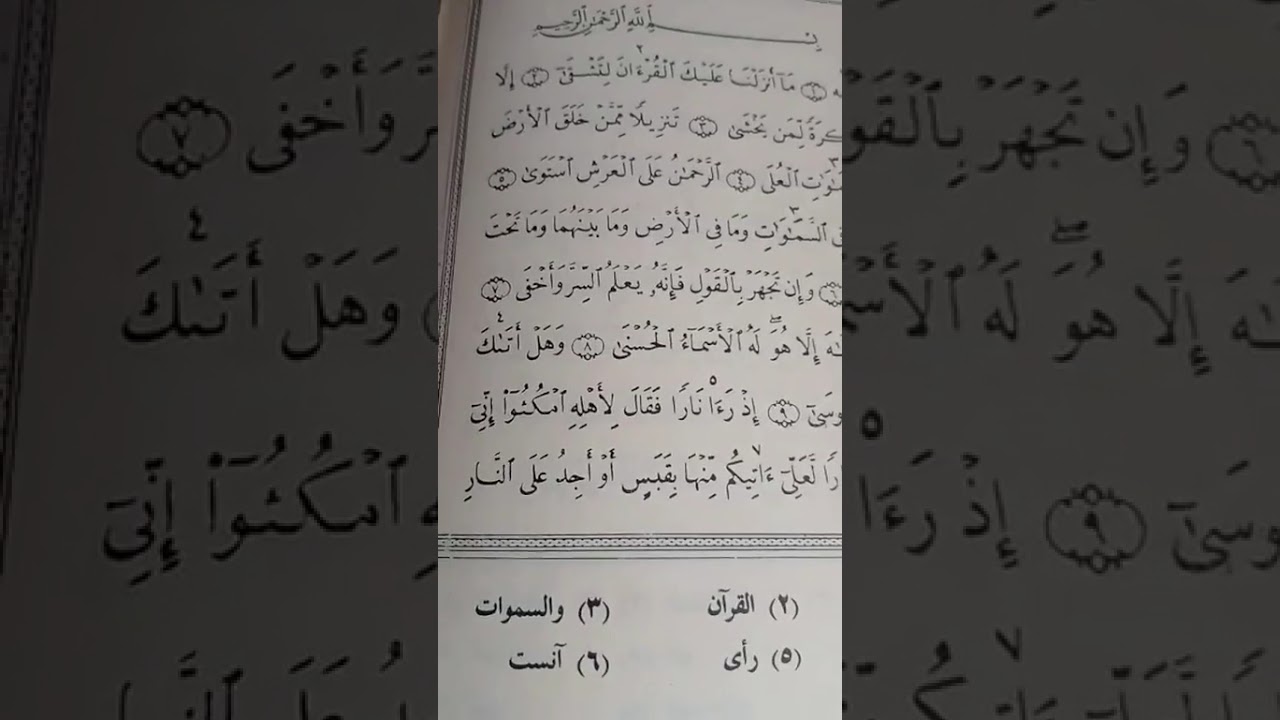 بِسْمِ ٱللَّهِ ٱلرَّحْمَٰنِ ٱلرَّحِيمِ
مَآ أَنزَلْنَا عَلَيْكَ ٱلْقُرْءَانَ لِتَشْقَىٰٓ ٢ إِلَّا
لِّمَن يَخْشَىٰ ٣ تَنزِيلًا مِّمَّنْ خَلَقَ ٱلْأَرْضَ
ٱلْعُلَى ٤ ٱلرَّحْمَٰنُ عَلَى ٱلْعَرْشِ ٱسْتَوَىٰ ٥
ٱلسَّمَٰوَٰتِ وَمَا فِى ٱلْأَرْضِ وَمَا بَيْنَهُمَا وَمَا تَحْتَ
وَإِن تَجْهَرْ بِٱلْقَوْلِ فَإِنَّهُۥ يَعْلَمُ ٱلسِّرَّ وَأَخْفَى ٧
إِلَّا هُوَ ۖ لَهُ ٱلْأَسْمَآءُ ٱلْحُسْنَىٰ ٨ وَهَلْ أَتَىٰكَ
٩ إِذْ رَءَا نَارًا فَقَالَ لِأَهْلِهِ ٱمْكُثُوٓا۟ إِنِّىٓ
لَّعَلِّىٓ ءَاتِيكُم مِّنْهَا بِقَبَسٍ أَوْ أَجِدُ عَلَى ٱلنَّارِ
(٢) القرآن (٣) والسموات
(٥) رأى (٦) آنست